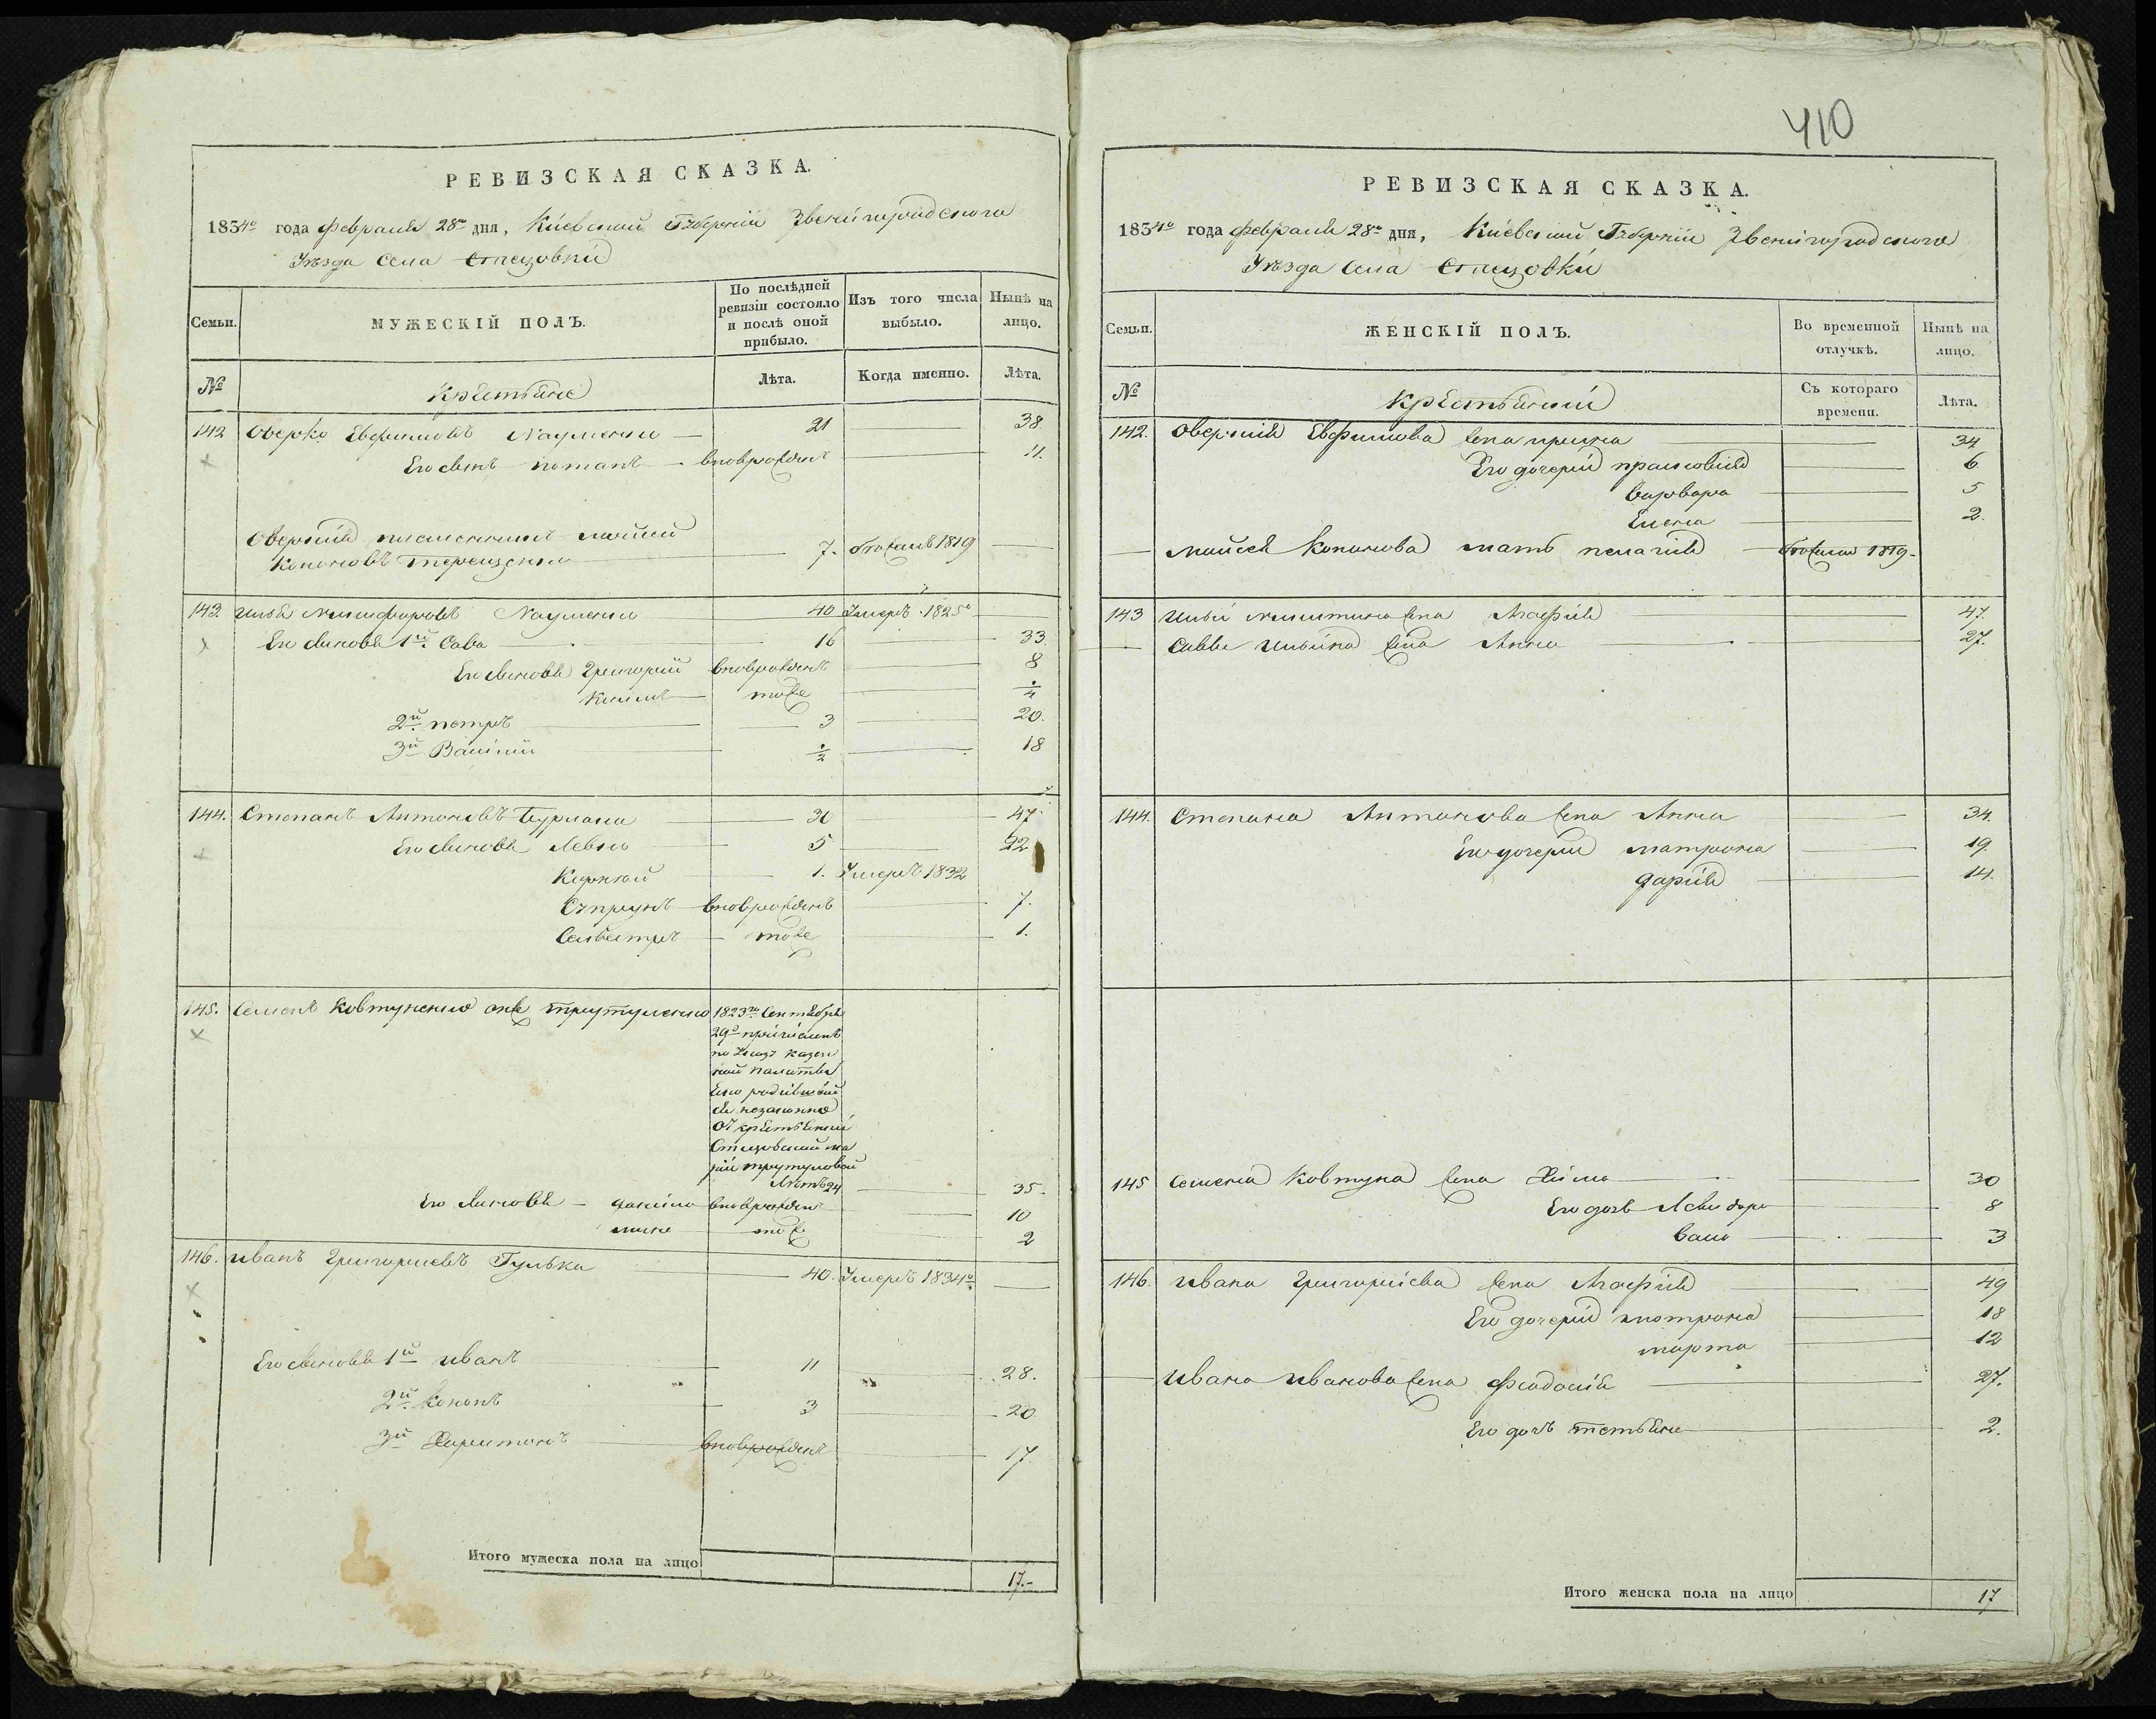 РЕВИЗСКАЯ СКАЗКА.
1834го года февраля 28го дня, Киевской Губернии Звенигородского
Уезда Села Стецовки
Семьи. МУЖЕСКІЙ ПОЛЪ. По послѣдней ревизіи состояло и послѣ оной прибыло. Изъ того числа выбыло. Нынѣ на лицо.
№ Крестьяне Лѣта. Когда именно. Лѣта.
142 Оверко Евфимовъ Науменко 21 38
Его сынъ Потапъ вновьрожденъ 11.
Оверкия племянникъ Мойсей
Кононовъ Терещенко 7. бежалъ 1819
143 Илья Никифоровъ Науменко 40 Умеръ 1825го
Его сыновья 1й Сава 16 33
Его сыновья Григорий вновьрожденъ 8
Климъ тоже ·/4
2й Петръ 3 20.
3й Василий ·/2 18
144. Степанъ Антоновъ Бурлака 30 47
Его сыновья Левко 5 22
Корней 1. Умеръ 1832
Супрунъ вновьрожденъ 7.
Селвестръ тоже 1.
145. Семенъ Ковтуненко онже Трутуленко 1823го Сентября
29го причисленъ
по Указу казен
ной палаты
яко родивший
ся незаконно
от крестьянки
Стецовской Ма
рии Трутуловой
Летъ 24 35.
Его Сыновья Данило вновьрожденъ 10
тоже 2
146. Иванъ Григориевъ Гулька 40. Умеръ 1834го
Его сыновья 1й Иванъ 11 28.
2й Кононъ 3 20
3й Харитонъ вновьрожденъ 17
Итого мужеска пола на лицо 17.
410
РЕВИЗСКАЯ СКАЗКА.
1834го года февраля 28го дня, Киевской Губернии Звенигородского
Уезда Села Стецовки
Семьи. ЖЕНСКІЙ ПОЛЪ. Во временной отлучкѣ. Нынѣ на лицо.
№ Крестьянки Съ котораго времени. Лѣта.
142. Оверкия Евфимова жена Ирина 34
Его дочери Прасковия 6
Варвара 5
Елена 2.
Мойсея Кононова мать Пелагия бежала 1819
143 Ильи жена Агафия 47.
Саввы Ильина жена Анна 27.
144. Степана Антонова жена Анна 34.
Его дочери Матрона 19.
Дария 14.
145 Семена Ковтуна жена 30
Его дочь 8
3
146. Ивана Григориева жена Агафия 49
Его дочери Мотрона 18
Марта 12
Ивана Иванова жена Феодосия 27.
Его дочь Тетьяна 2.
Итого женска пола на лицо 17